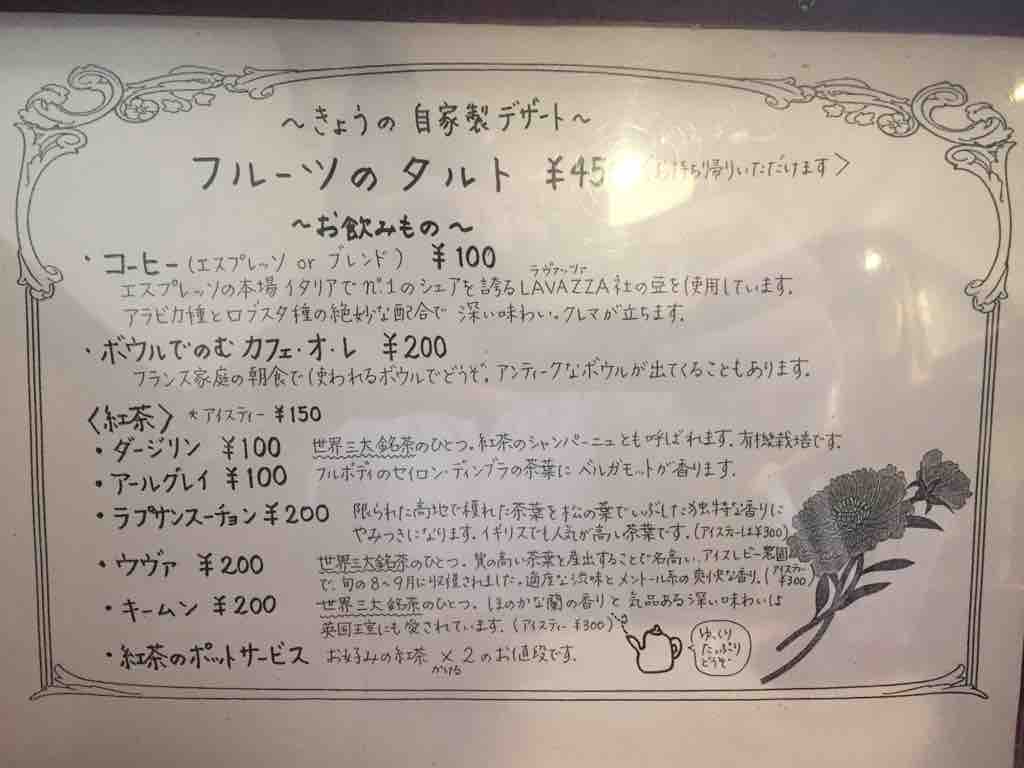 ～きょうの 自家製デザート～
フルーツのタルト ¥45 〈お持ち帰りいただけます〉
～お飲みもの～
・コーヒー(エスプレッソ or ブレンド) ¥100
ラヴァッツァ
エスプレッソの本場イタリアでnº1のシェアを誇るLAVAZZA社の豆を使用しています。
アラビカ種とロブスタ種の絶妙な配合で 深い味わい。クレマが立ちます。
・ボウルでのむ カフェ・オ・レ ¥200
フランス家庭の朝食で使われるボウルでどうぞ。アンティークなボウルが出てくることもあります。
〈紅茶〉 *アイスティー ¥150
・ダージリン ¥100 世界三大銘茶のひとつ。紅茶のシャンパーニュとも呼ばれます。有機栽培です。
・アールグレイ ¥100 フルボディのセイロン・ディンブラの茶葉に ベルガモットが香ります。
・ラプサンスーチョン ¥200 限られた高地で穫れた茶葉を松の葉でいぶした独特な香りに
やみつきになります。イギリスでも人気が高い茶葉です。(アイスティーは¥300)
・ウヴァ ¥200 世界三大銘茶のひとつ。質の高い茶葉を産出することで名高い、アイスレビー農園
で、旬の8～9月に収穫されました。適度な渋味とメントール系の爽快な香り。(アイスティー ¥300)
・キームン ¥200 世界三大銘茶のひとつ。ほのかな蘭の香りと 気品ある深い味わいは
英国王室にも愛されています。(アイスティー ¥300)
・紅茶のポットサービス お好みの紅茶 × 2のお値段です。
かける
ゆっくり
たっぷり
どうぞ